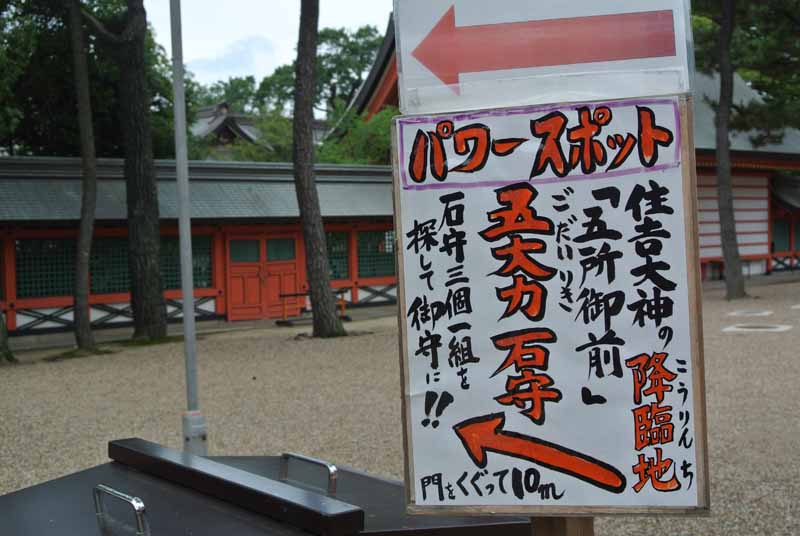 パワースポット
住吉大神の降臨地
こうりんち
「五所御前」
ごだいりき
五大力石守
石守三個一組を
探して御守に!!
門をくぐって10m